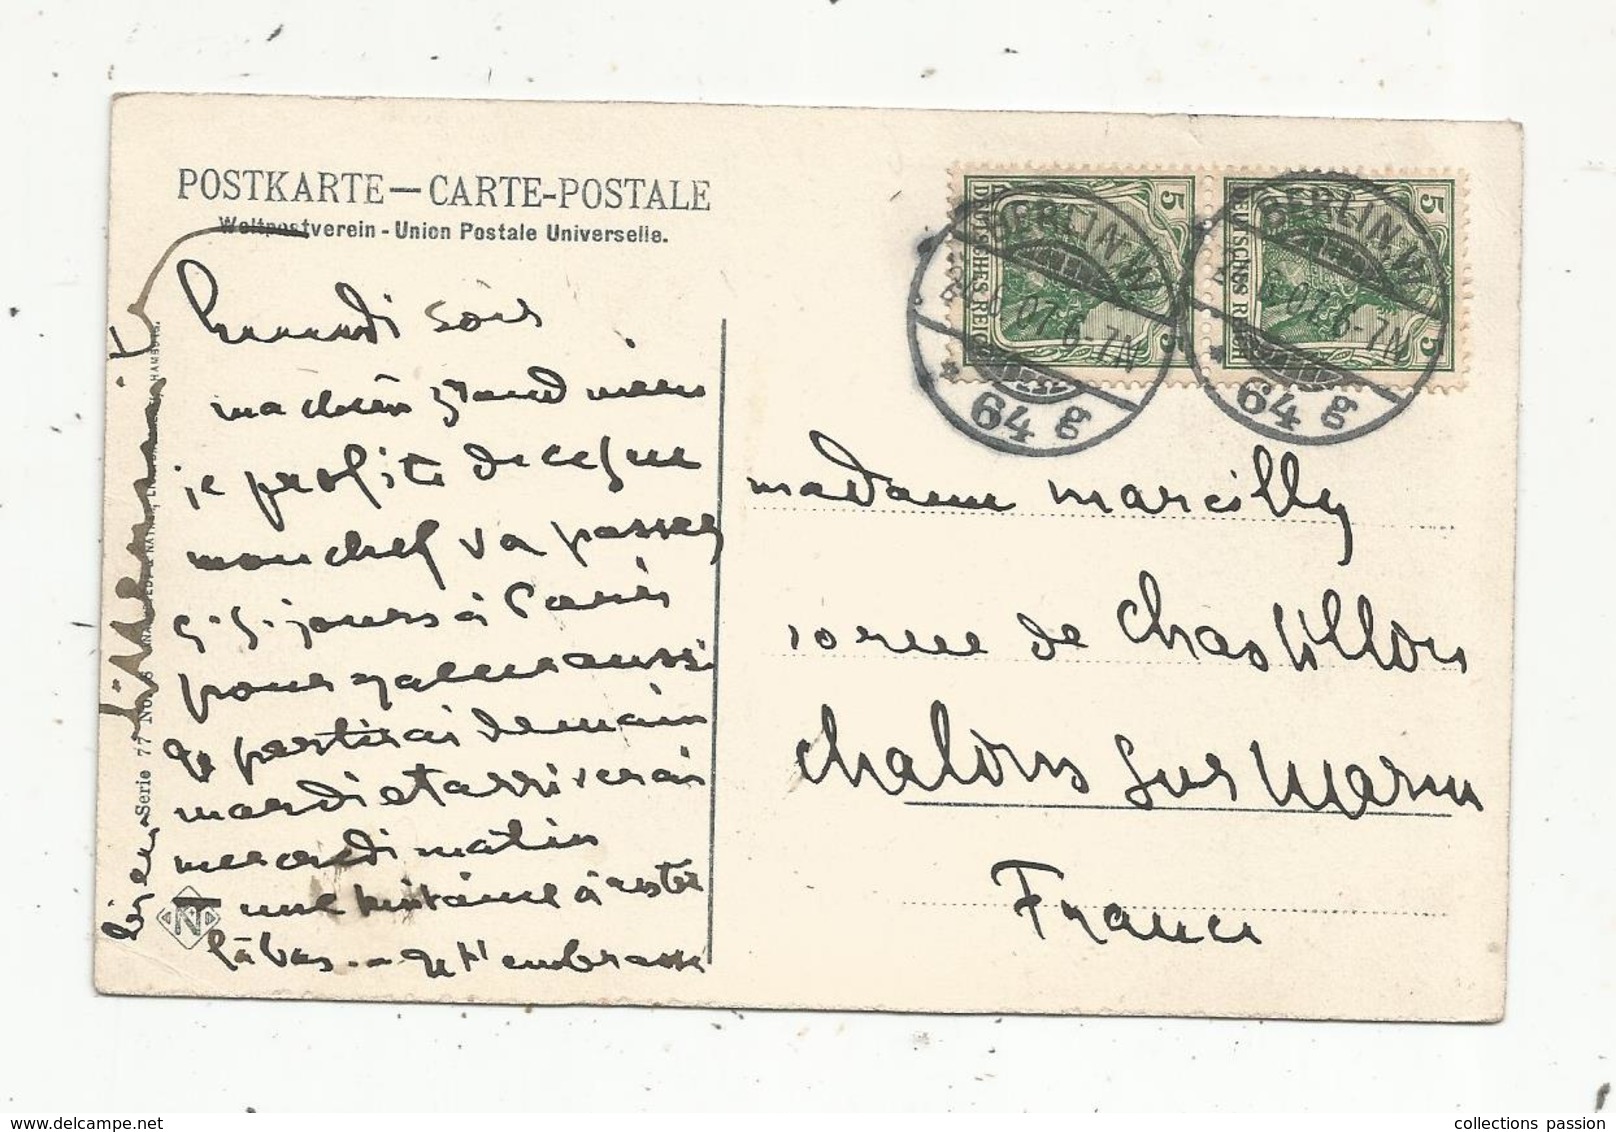 POSTKARTE — CARTE-POSTALE
Weltpostverein - Union Postale Universelle.
soir
ma chère grand mère
je profite de ce que
mon chef va passer
jours à Paris
pour y aller aussi
Je partirai demain
mardi et arriverai
mercredi matin
une semaine à rester
là bas - Je t'embrasse
bien
Serie 77 No.
madame marcilly
10 rue de Chastillon
Chalons sur Marne
France
DEUTSCHES REICH
5
5
DEUTSCHES REICH
5
5
BERLIN.W
07.6-7N
* 64 g
BERLIN.W
07.6-7N
* 64 g
collections passion